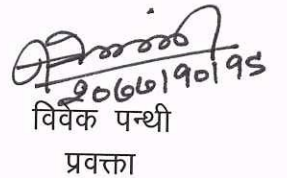 २०७७।१०।१५
विवेक पन्थी
प्रवक्ता